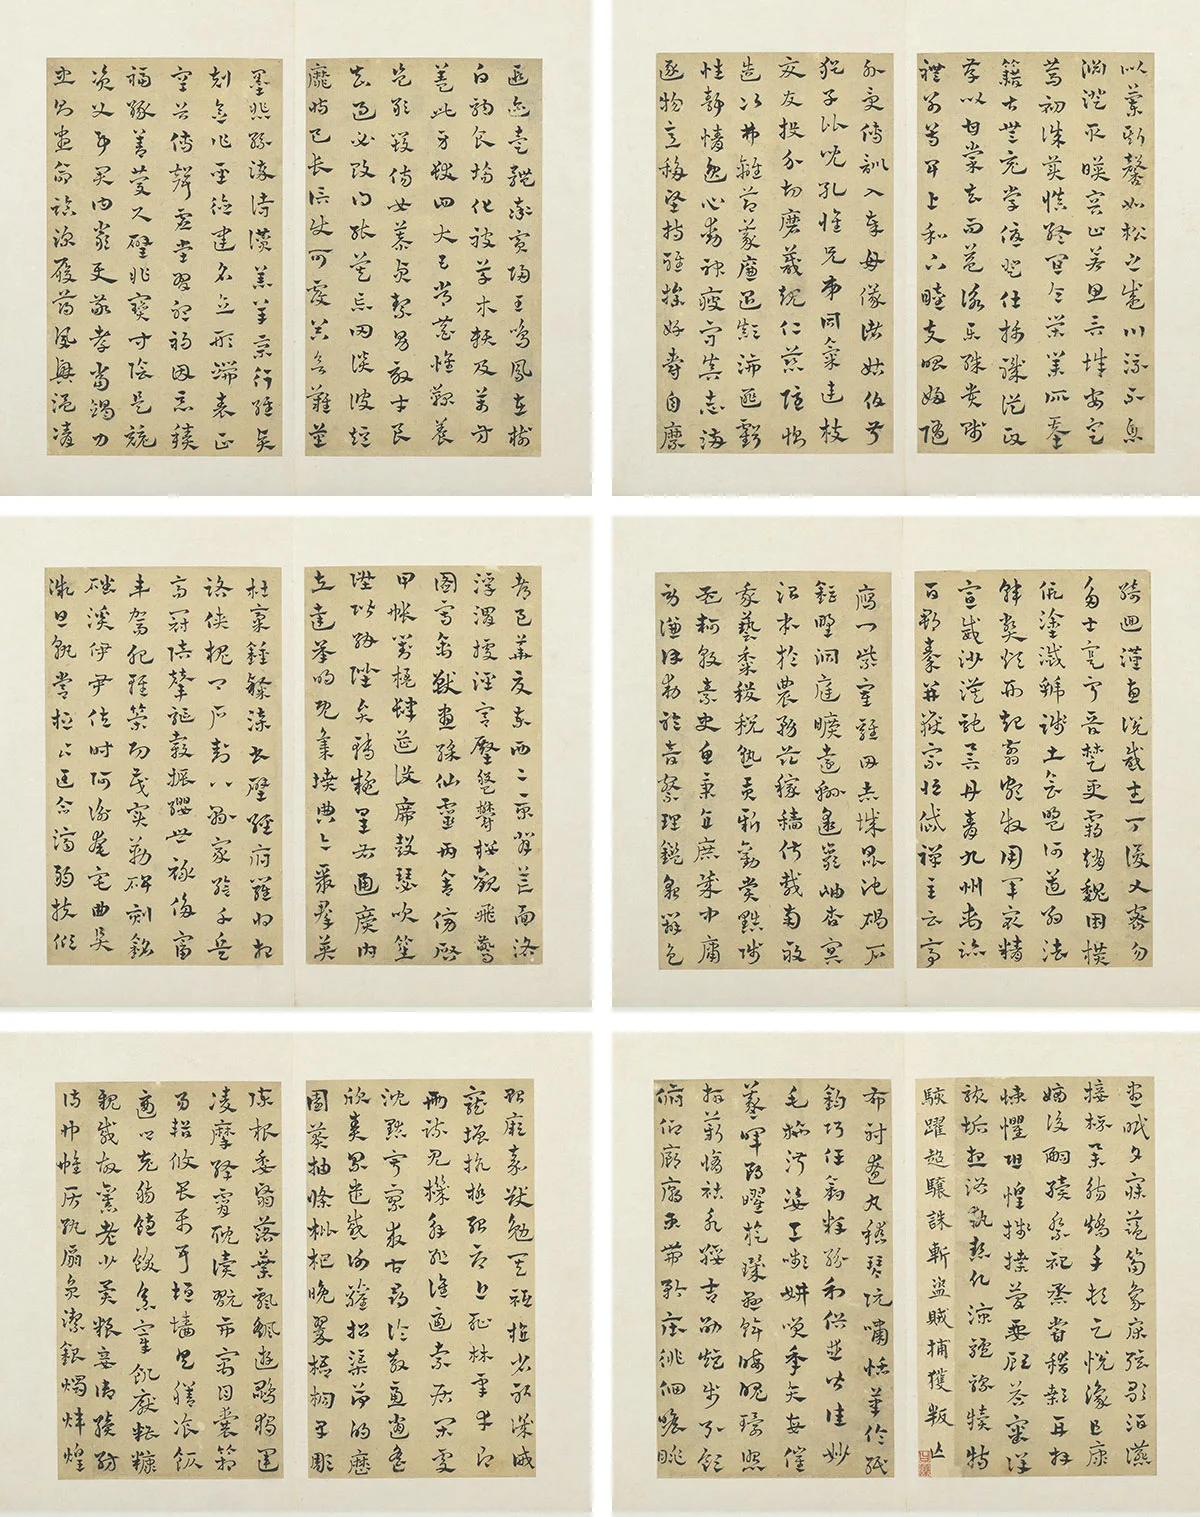 遐迩壹體率賓歸王鳴鳳在樹
白駒食場化被草木賴及萬方
蓋此身髮四大五常恭惟鞠養
豈敢毀傷女慕貞絜男效才良
知過必改得能莫忘罔談彼短
靡恃己長信使可覆器欲難量
墨悲絲染詩讚羔羊景行維賢
剋念作聖德建名立形端表正
空谷傳聲虛堂習聽禍因惡積
福緣善慶尺璧非寶寸陰是競
資父事君曰嚴與敬孝當竭力
忠則盡命臨深履薄夙興溫凊
似蘭斯馨如松之盛川流不息
淵澄取暎容止若思言辭安定
篤初誠美慎終宜令榮業所基
籍甚無竟學優登仕攝職從政
存以甘棠去而益詠樂殊貴賤
禮別尊卑上和下睦夫唱婦隨
外受傅訓入奉母儀諸姑伯叔
猶子比兒孔懷兄弟同氣連枝
交友投分切磨箴規仁慈隱惻
造次弗離節義廉退顛沛匪虧
性靜情逸心動神疲守真志滿
逐物意移堅持雅操好爵自縻
都邑華夏東西二京背芒面洛
浮渭據涇宮殿盤鬱樓觀飛驚
圖寫禽獸畫綵仙靈丙舍傍啟
甲帳對楹肆筵設席鼓瑟吹笙
陞階納陛弁轉疑星右通廣內
左達承明既集墳典亦聚群英
杜稾鍾隸漆書壁經府羅將相
路俠槐卿戶封八縣家給千兵
高冠陪輦驅轂振纓世祿侈富
車駕肥輕策功茂實勒碑刻銘
磻溪伊尹佐時阿衡奄宅曲阜
微旦孰營桓公匡合濟弱扶傾
綺迴漢惠說感武丁俊乂密勿
多士寔寧晉楚更霸趙魏困橫
假途滅虢踐土會盟何遵約法
韓弊煩刑起翦頗牧用軍最精
宣威沙漠馳譽丹青九州禹跡
百郡秦并嶽宗恆岱禪主云亭
雁門紫塞雞田赤城昆池碣石
鉅野洞庭曠遠緜邈巖岫杳冥
治本於農務茲稼穡俶載南畝
我藝黍稷稅熟貢新勸賞黜陟
孟軻敦素史魚秉直庶幾中庸
勞謙謹勑聆音察理鑒貌辨色
貽厥嘉猷勉其祗植省躬譏誡
寵增抗極殆辱近恥林皋幸即
兩疏見機解組誰逼索居閑處
沉默寂寥求古尋論散慮逍遙
欣奏累遣慼謝歡招渠荷的歷
園莽抽條枇杷晚翠梧桐早彫
陳根委翳落葉飄颻遊鵾獨運
淩摩絳霄耽讀翫市寓目囊箱
易輶攸畏屬耳垣牆具膳飡飯
適口充腸飽飫烹宰飢厭糟糠
親戚故舊老少異糧妾御績紡
侍巾帷房紈扇圓潔銀燭煒煌
晝眠夕寐藍筍象床弦歌酒讌
接杯舉觴矯手頓足悅豫且康
嫡後嗣續祭祀烝嘗稽顙再拜
悚懼恐惶牋牒簡要顧答審詳
骸垢想浴執熱願涼驢騾犢特
駭躍超驤誅斬盜賊捕獲叛亡
布射遼丸嵇琴阮嘯恬筆倫紙
鈞巧任釣釋紛利俗並皆佳妙
毛施淑姿工嚬妍笑年矢每催
羲暉朗曜旋璣懸斡晦魄環照
指薪脩祜永綏吉劭矩步引領
俯仰廊廟束帶矜莊徘徊瞻眺